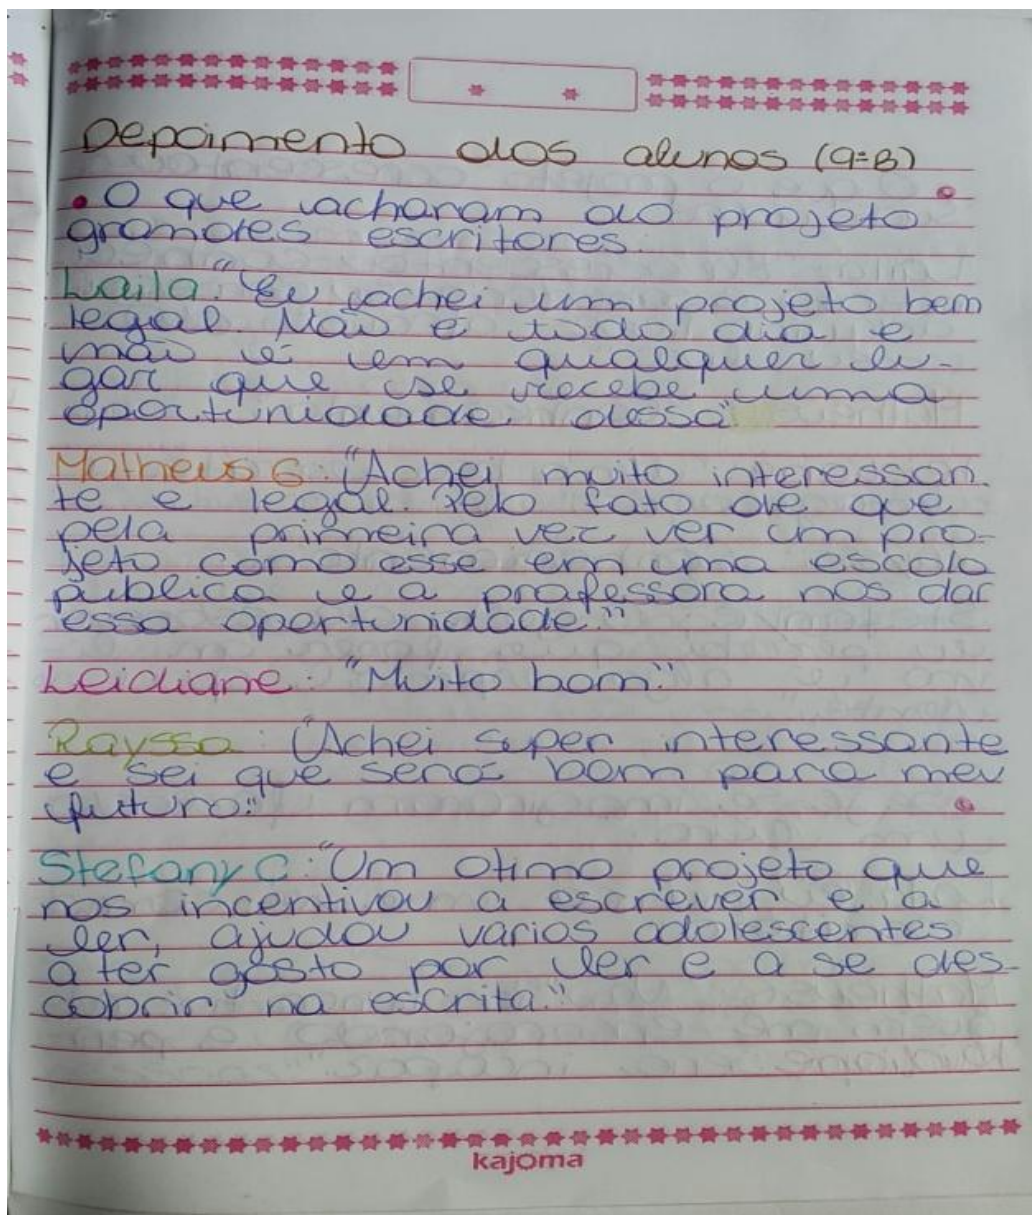 Depoimento dos alunos (9=B)
• O que acharam do projeto
grandes escritores.
Laila: "Eu achei um projeto bem
legal. Não é todo dia e
não é em qualquer lu-
gar que se recebe uma
oportunidade dessa"
Matheus G: "Achei muito interessan-
te e legal. Pelo fato de que
pela primeira vez ver um pro-
jeto como esse em uma escola
publica e a professora nos dar
essa oportunidade."
Leidiane: "Muito bom."
Rayssa: "Achei super interessante
e sei que será bom para meu
futuro."
Stefany C: "Um otimo projeto que
nos incentivou a escrever e a
ler, ajudou varios adolescentes
a ter gosto por ler e a se des-
cobrir na escrita."
kajoma